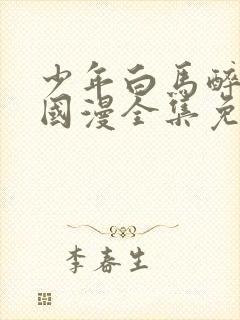 少年白馬醉
國漫全集免
李春生